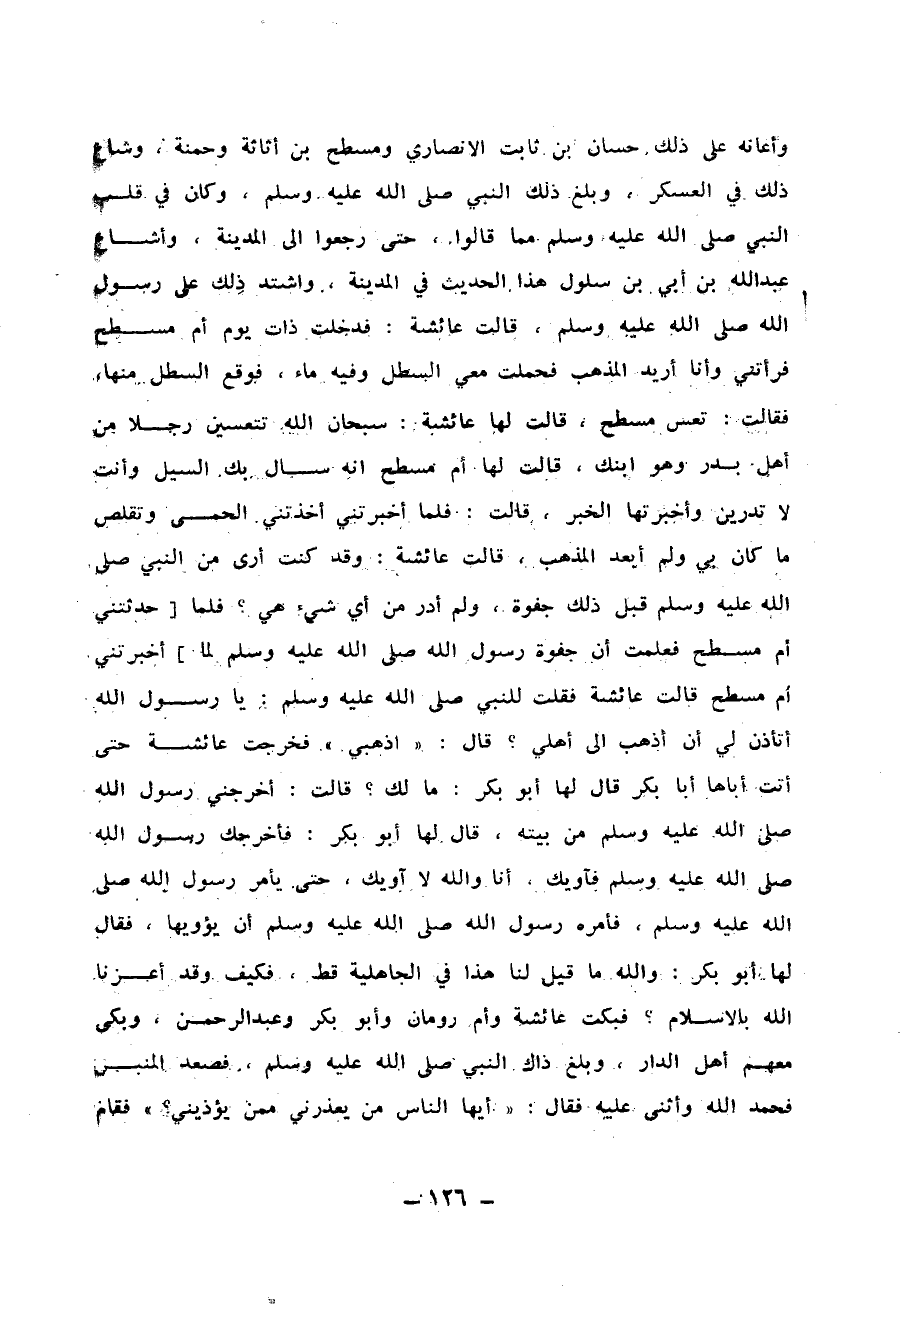 وأعانه على ذلك حسان بن ثابت الانصاري ومسطح بن أثاثة وحمنة ، وشاع
ذلك في العسكر ، وبلغ ذلك النبي صلى الله عليه وسلم ، وكان في قلب
النبي صلى الله عليه وسلم مما قالوا ، حتى رجعوا الى المدينة ، وأشاع
عبدالله بن أبي بن سلول هذا الحديث في المدينة ، واشتد ذلك على رسول
الله صلى الله عليه وسلم ، قالت عائشة : فدخلت ذات يوم أم مسطح
فرأتني وأنا أريد المذهب فحملت معي السطل وفيه ماء ، فوقع السطل منها،
فقالت : تعس مسطح ، قالت لها عائشة : سبحان الله تتعسين رجلا من
أهل بدر وهو ابنك ، قالت لها أم مسطح انه سال بك السيل وأنت
لا تدرين وأخبرتها الخبر ، قالت : فلما أخبرتني أخذتني الحمى وتقلص
ما كان بي ولم أبعد المذهب ، قالت عائشة : وقد كنت أرى من النبي صلى
الله عليه وسلم قبل ذلك جفوة ، ولم أدر من أي شيء هي ؟ فلما [ حدثتني
أم مسطح فعلمت أن جفوة رسول الله صلى الله عليه وسلم لما ] أخبرتني
أم مسطح قالت عائشة فقلت للنبي صلى الله عليه وسلم : يا رسول الله
أتأذن لي أن أذهب الى أهلي ؟ قال : « اذهبي » فخرجت عائشة حتى
أتت أباها أبا بكر قال لها أبو بكر : ما لك ؟ قالت : أخرجني رسول الله
صلى الله عليه وسلم من بيته ، قال لها أبو بكر : فأخرجك رسول الله
صلى الله عليه وسلم فآويك ، أنا والله لا آويك ، حتى يأمر رسول الله صلى
الله عليه وسلم ، فأمره رسول الله صلى الله عليه وسلم أن يؤويها ، فقال
لها أبو بكر : والله ما قيل لنا هذا في الجاهلية قط ، فكيف وقد أعزنا
الله بالاسلام ؟ فبكت عائشة وأم رومان وأبو بكر وعبدالرحمن ، وبكى
معهم أهل الدار ، وبلغ ذاك النبي صلى الله عليه وسلم ، فصعد المنبر
فحمد الله وأثنى عليه فقال : « أيها الناس من يعذرني ممن يؤذيني؟ » فقام
– ١٢٦ –